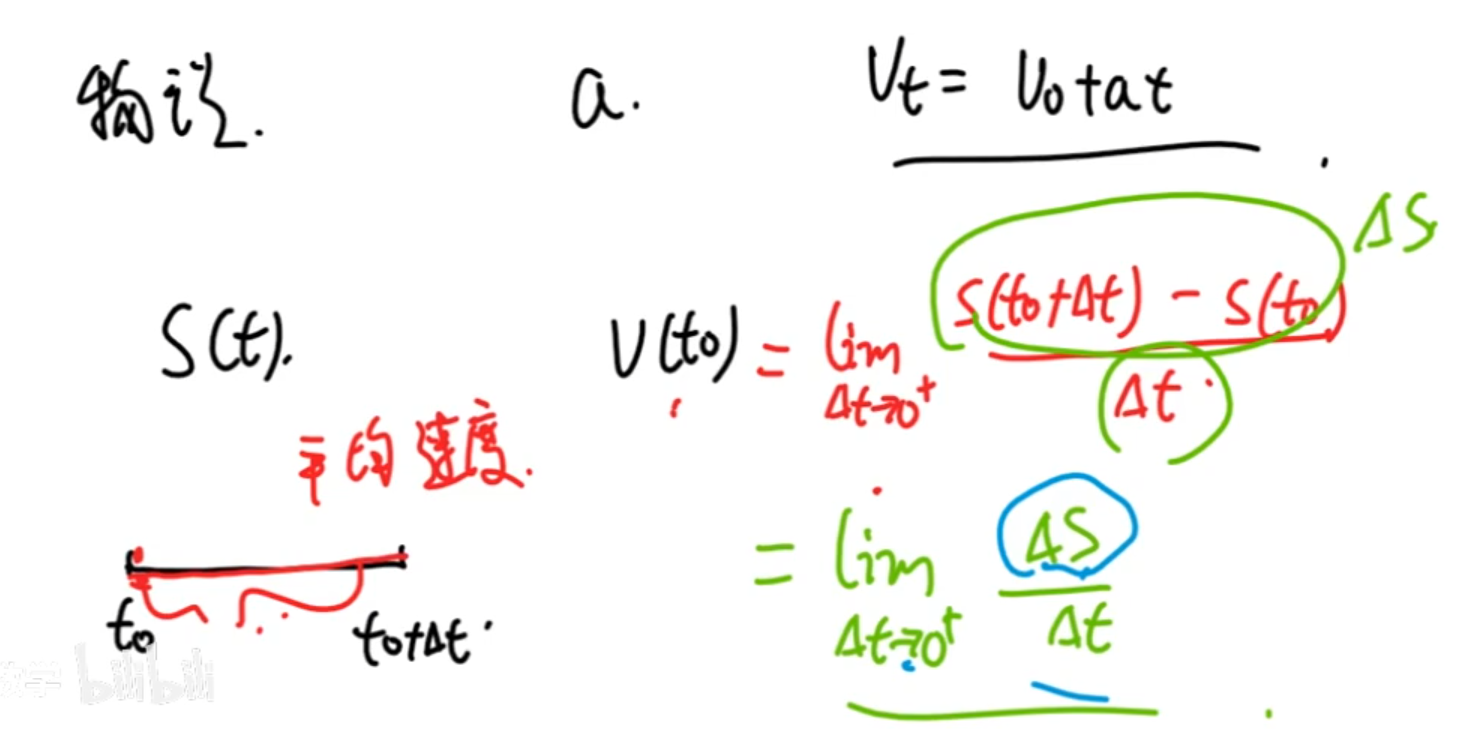 a. Vt = V0+at
ΔS
S(t). V(t0) = lim Δt→0⁺ (S(t0+Δt) - S(t0)) / Δt
平均速度.
= lim Δt→0⁺ ΔS / Δt
t0 t0+Δt
bilibili